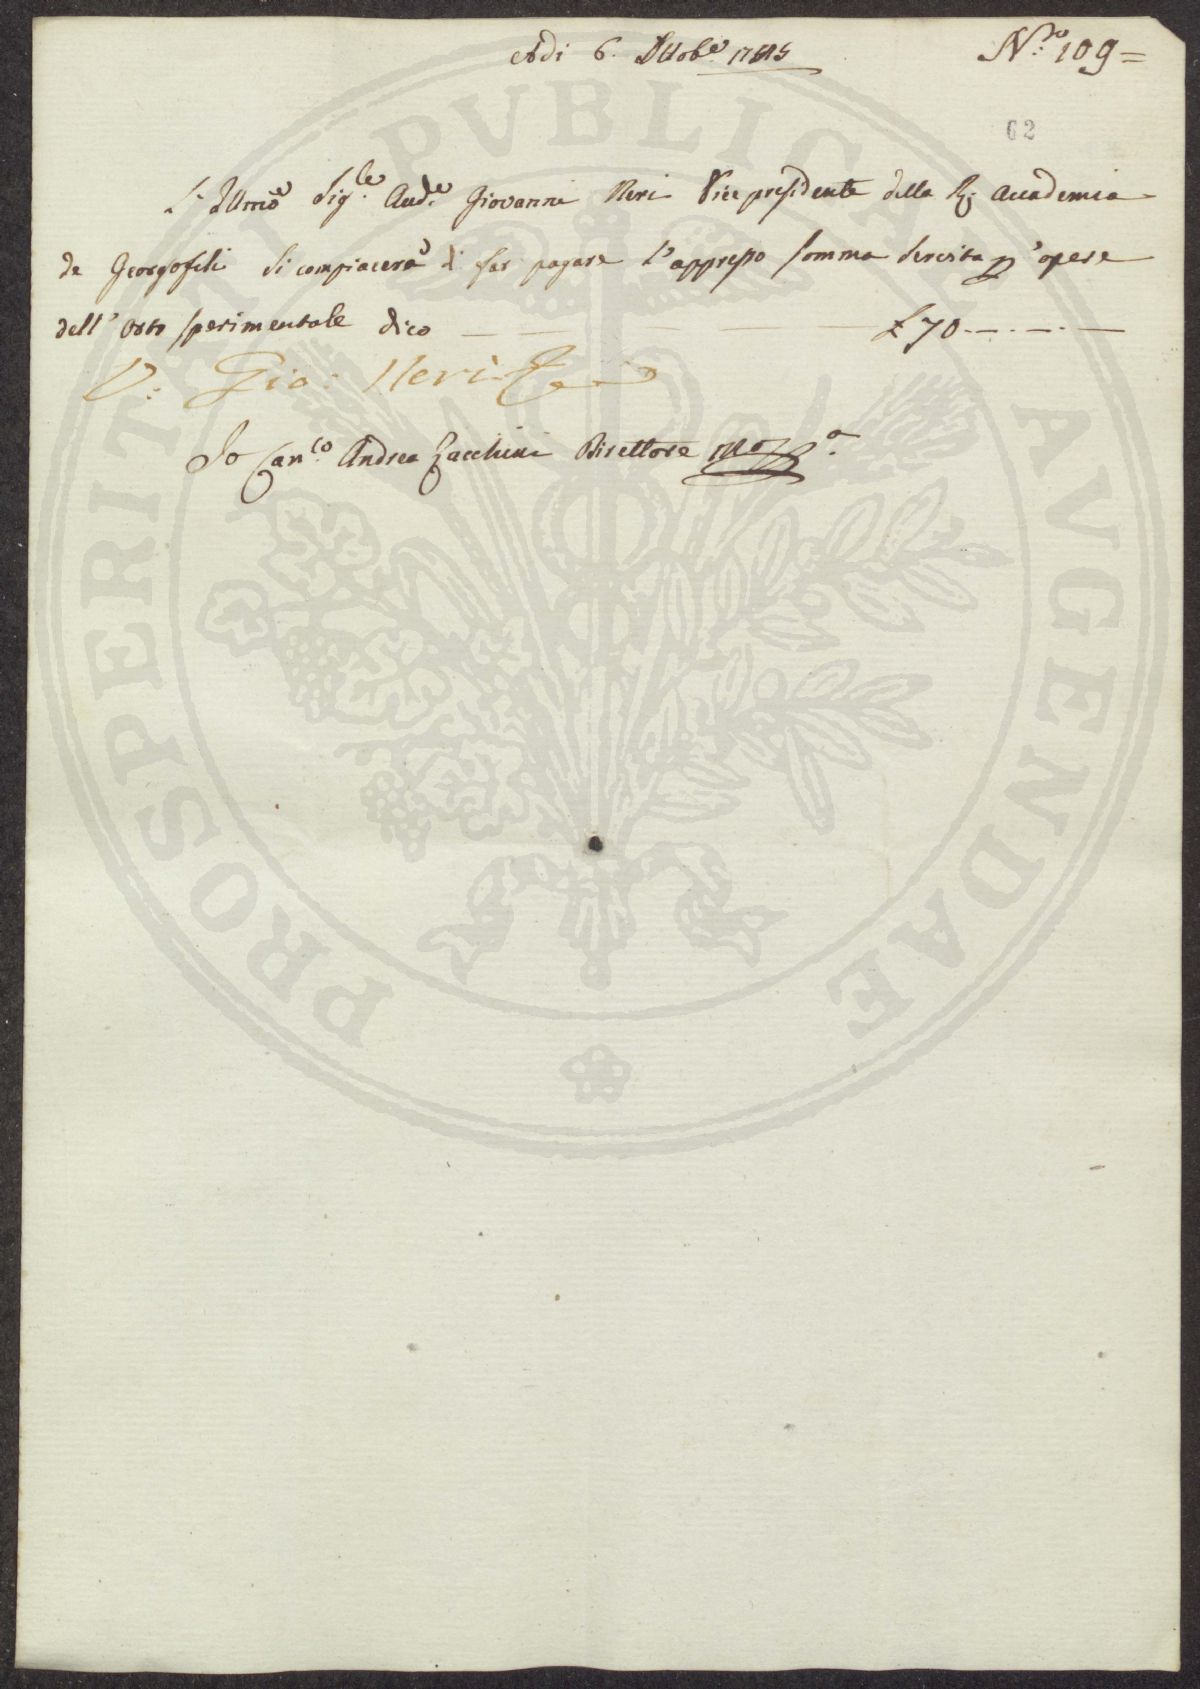 Adi 6. Ottobe 17
No: 109=
62
L' Illmo Sigre Aude Giovanni Neri Vice presidente della R: Accademia
de Georgofili si compiacerà di far pagare l'appresso somma servita p l'opere
dell'Orto sperimentale dico £ 70
V: Gio: Neri
Io Canco Andrea Zucchini Direttore
PROSPERITATI PVBLICAE AVGENDAE